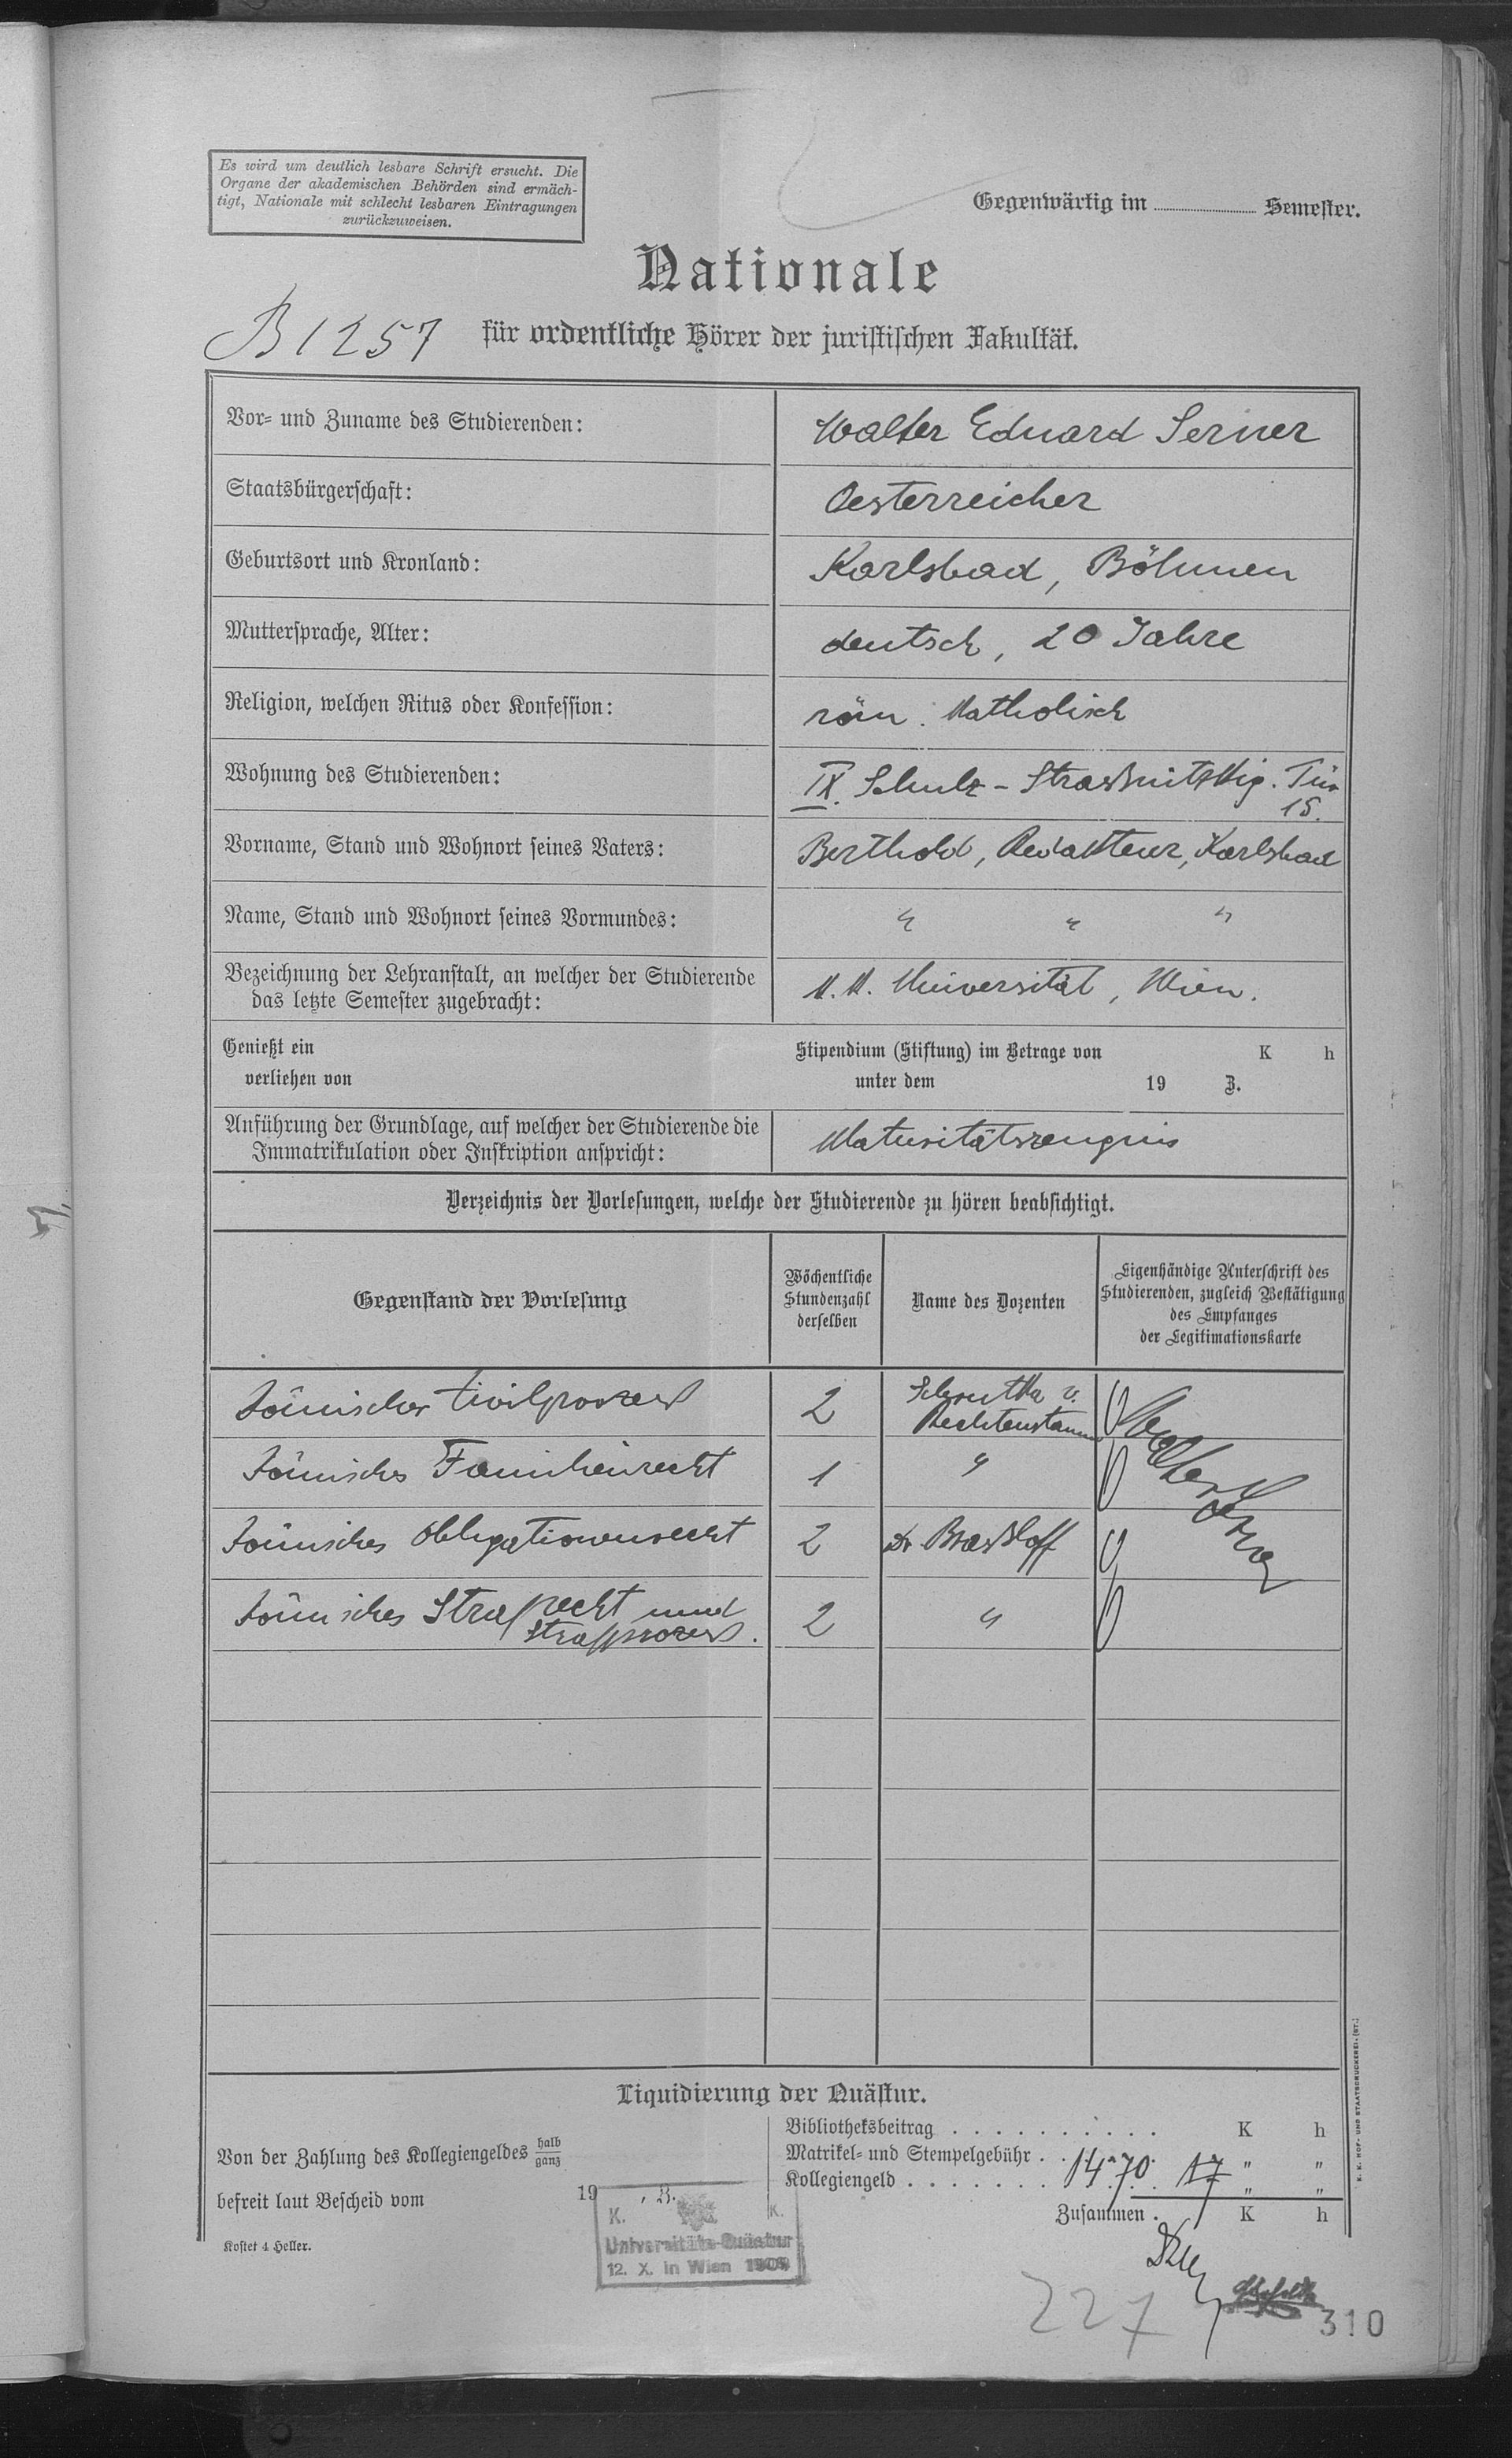 Es wird um deutlich lesbare Schrift ersucht. Die
Organe der akademischen Behörden sind ermäch-
tigt, Nationale mit schlecht lesbaren Eintragungen
zurückzuweisen.
Gegenwärtig im Semester.
Nationale
B 1257
für ordentliche Hörer der juristischen Fakultät.
Vor- und Zuname des Studierenden: Walter Eduard Serner
Staatsbürgerschaft: Oesterreicher
Geburtsort und Kronland: Karlsbad, Böhmen
Muttersprache, Alter: deutsch, 20 Jahre
Religion, welchen Ritus oder Konfession: röm. Katholisch
Wohnung des Studierenden: IX. Schulz - Straßnitzkig. Tür
15.
Vorname, Stand und Wohnort seines Vaters: Berthold, Redakteur, Karlsbad
Name, Stand und Wohnort seines Vormundes: " " "
Bezeichnung der Lehranstalt, an welcher der Studierende
das letzte Semester zugebracht: K. K. Universität, Wien.
Genießt ein Stipendium (Stiftung) im Betrage von K h
verliehen von unter dem 19 Z.
Anführung der Grundlage, auf welcher der Studierende die
Immatrikulation oder Inskription anspricht: Maturitätszeugnis
Verzeichnis der Vorlesungen, welche der Studierende zu hören beabsichtigt.
Gegenstand der Vorlesung
Wöchentliche
Stundenzahl
derselben
Name des Dozenten
Eigenhändige Unterschrift des
Studierenden, zugleich Bestätigung
des Empfanges
der Legitimationskarte
Römischer Civilprozess 2 Schrutka v.
Rechtenstamm
Römisches Familienrecht 1 "
Römisches Obligationenrecht 2 Dr Braßloff
Römisches Strafrecht und
Strafprozess. 2 "
Walter Serner
Liquidierung der Quästur.
Von der Zahlung des Kollegiengeldes halb
ganz
befreit laut Bescheid vom 19 , Z.
Bibliotheksbeitrag . . . . . . . . . . K h
Matrikel- und Stempelgebühr . . " "
Kollegiengeld . . . . . . . 14.70 17 " "
Zusammen . K h
Kostet 4 Heller.
K. K.
Universitäts-Quästur
12. X. in Wien 1909
K. K. HOF- UND STAATSDRUCKEREI. (ST.)
227
310